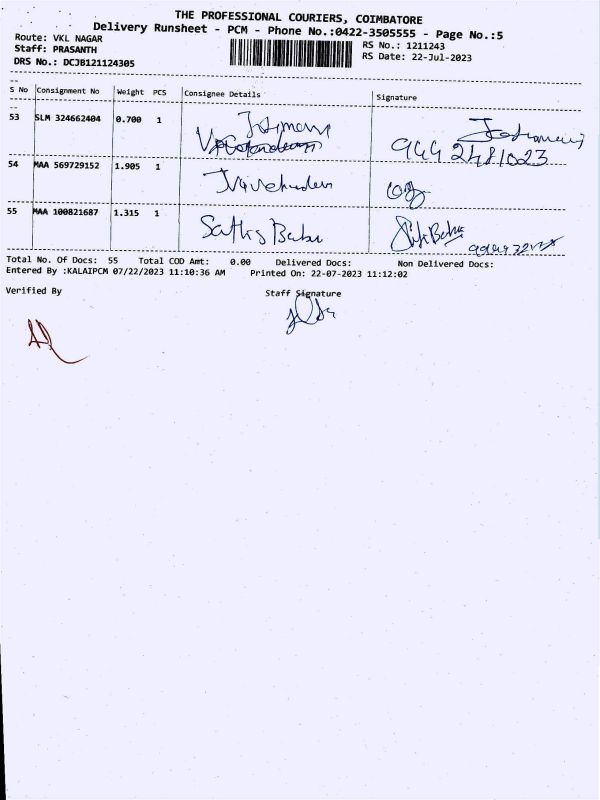 THE PROFESSIONAL COURIERS, COIMBATORE
Delivery Runsheet - PCM - Phone No.:0422-3505555 - Page No.:5
Route: VKL NAGAR
RS No.: 1211243
Staff: PRASANTH
RS Date: 22-Jul-2023
DRS No.: DCJB121124305
S No Consignment No Weight PCS Consignee Details Signature
53 SLM 324662404 0.700 1
54 MAA 569729152 1.905 1
55 MAA 100821687 1.315 1 Babu
Total No. Of Docs: 55 Total COD Amt: 0.00 Delivered Docs: Non Delivered Docs:
Entered By :KALAIPCM 07/22/2023 11:10:36 AM Printed On: 22-07-2023 11:12:02
Verified By Staff Signature